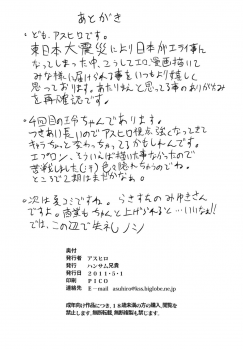 あとがき
・ども、アスヒロです。
東日本大震災により日本がエライ事に
なってしまった中、こうしてエロ漫画描いて
みな様に届けられる事をいつもより嬉しく
思っております。あたりまえと思ってる事のありがたみ
を再確認です。
・4回目の
つきあい長いのでアスヒロ視点 強くなってきて
キャラちょっと変わっちゃってるかもしれんです。
エプロン、そういえば描いた事なかったので
苦戦しました(し)色々隠れちゃうのでね。
ところで2期はまだかなぁ。
・次は夏コミですね。 らさすちのみゆきさん
ですよ。 商業もちゃんと上げられると…いいなぁ!!
では、この辺で失礼ノシ
奥付
発行者 アスヒロ
発行 ハンサム兄貴
発行日 2011・5・1
印刷 PICO
連絡先 E-mail asuhiro@kss.biglobe.ne.jp
成年向け作品につき、18歳未満の方の購入、閲覧を
禁止します。無断転載、無断複製も禁じます。